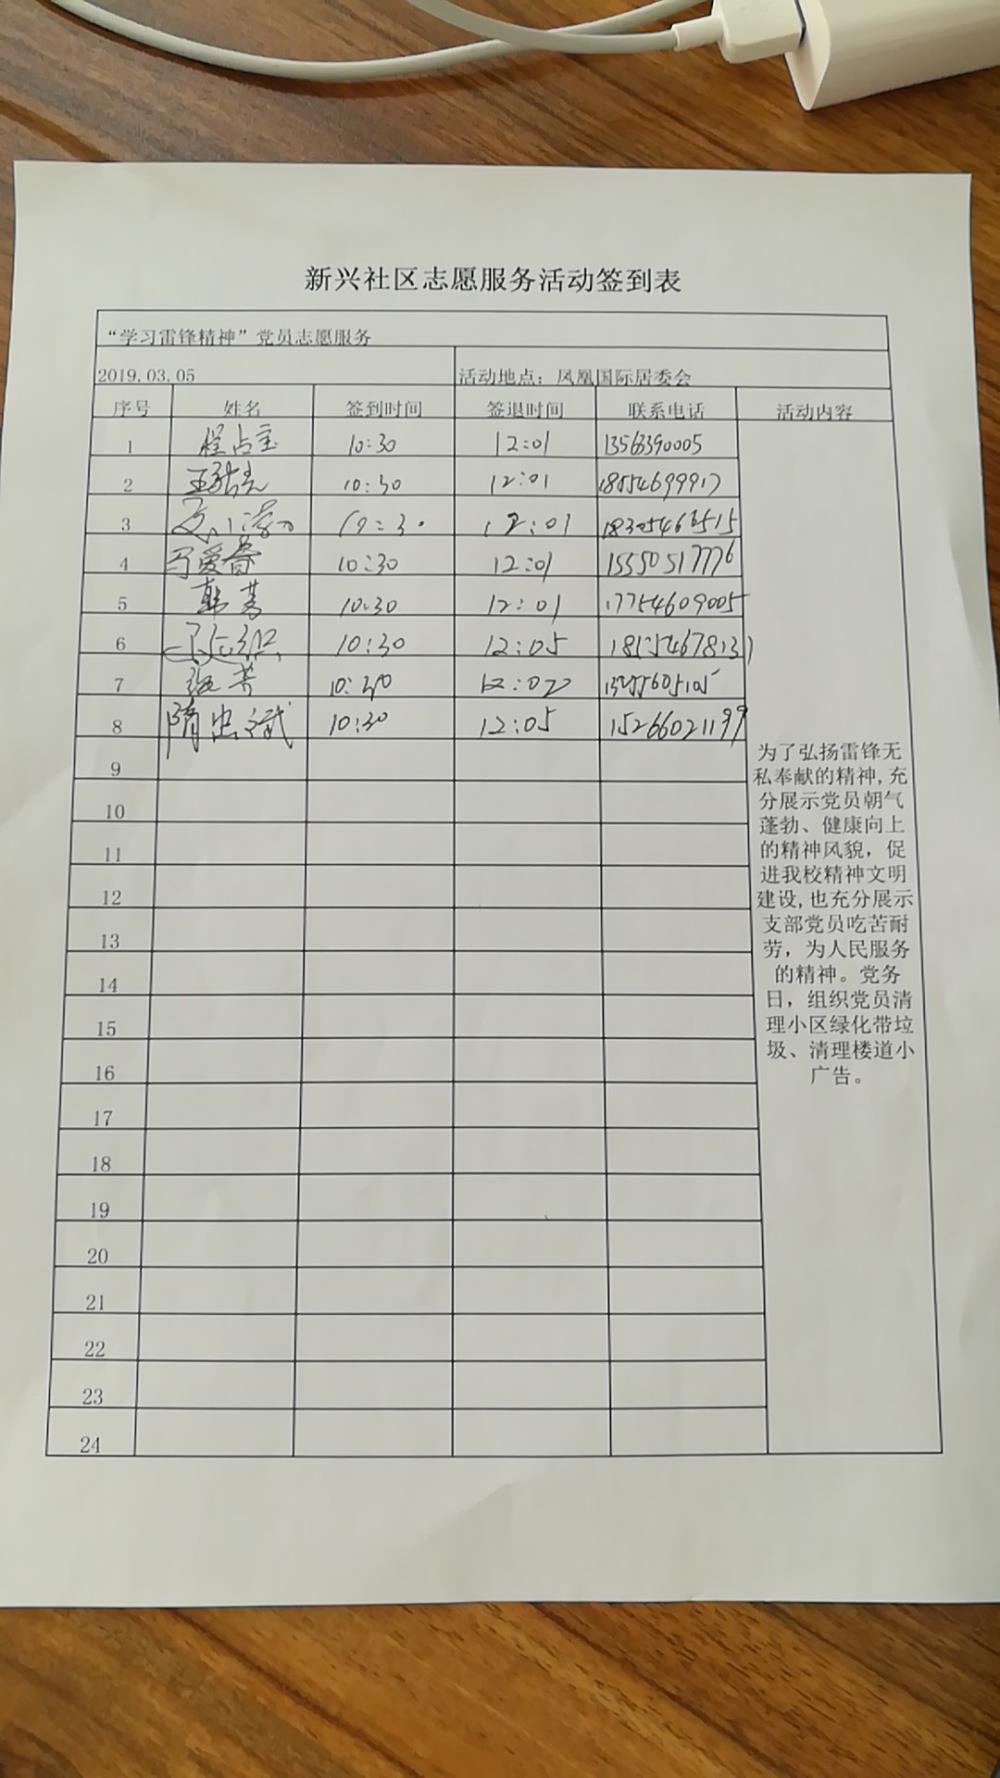 新兴社区志愿服务活动签到表
“学习雷锋精神”党员志愿服务
2019.03.05 活动地点：凤凰国际居委会
序号 姓名 签到时间 签退时间 联系电话 活动内容
1 程占宝 10:30 12:01 13563390005
2 10:30 12:01
3 12:01 18305466515
4 马爱香 10:30 12:01 15550517776
5 韩菁 10:30 12:01 17754609005
6 10:30 12:05
7 张芳 10:30 12:02
8 隋忠斌 10:30 12:05 15266021199
9
10
11
12
13
14
15
16
17
18
19
20
21
22
23
24
为了弘扬雷锋无
私奉献的精神,充
分展示党员朝气
蓬勃、健康向上
的精神风貌，促
进我校精神文明
建设,也充分展示
支部党员吃苦耐
劳，为人民服务
的精神。党务
日，组织党员清
理小区绿化带垃
圾、清理楼道小
广告。